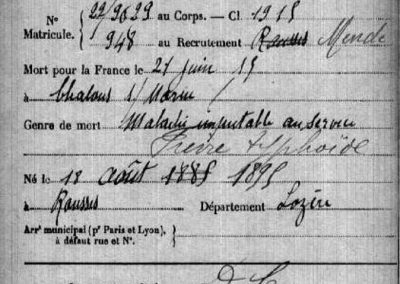 N° 22/9629 au Corps. — Cl. 1915
Matricule. 948 au Recrutement Rousses Mende
Mort pour la France le 21 juin 15
à Chalons s/ Marne
Genre de mort Maladie imputable au service
Fièvre typhoïde
Né le 18 août 1885 1895
à Rousses Département Lozère
Arr^t municipal (p^r Paris et Lyon),
à défaut rue et N°.